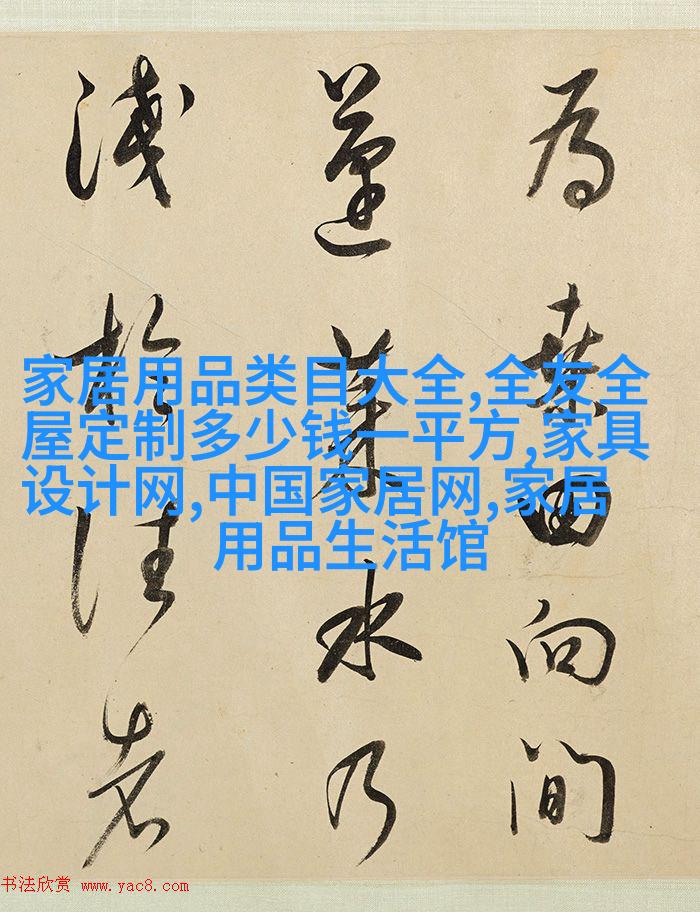 為桑田向間
蓬萊水乃
淺於往者
家居用品类目大全,全友全
屋定制多少钱一平方,家具
设计网,中国家居网,家居
用品生活馆
书法欣赏 www.yac8.com